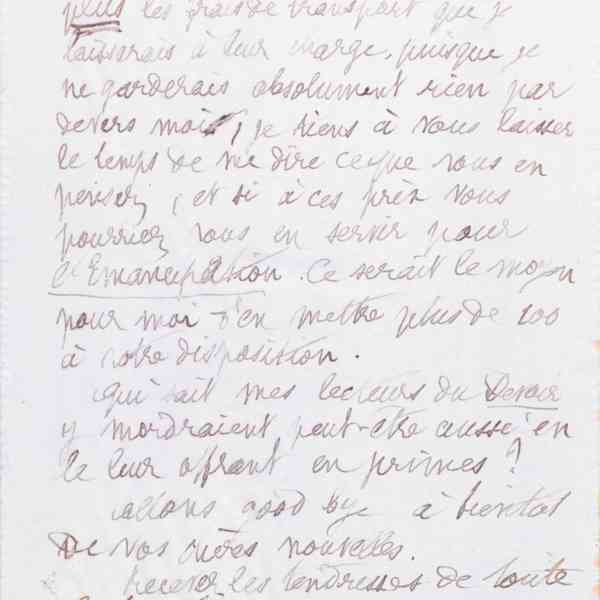 plus les frais de transport que je
laisserais à leur charge, puisque je
ne garderais absolument rien par
devers moi, je tiens à vous laisser
le temps de me dire ce que vous en
pensez, et si à ces prix vous
pourriez vous en servir pour
l'Emancipation. Ce serait le moyen
pour moi d'en mettre plus de 100
à votre disposition.
Qui sait mes lecteurs du Devoir
y mordraient peut-être aussi en
le leur offrant en primes ?
allons good bye à bientot
De vos chères nouvelles.
recevez les tendresses de toute